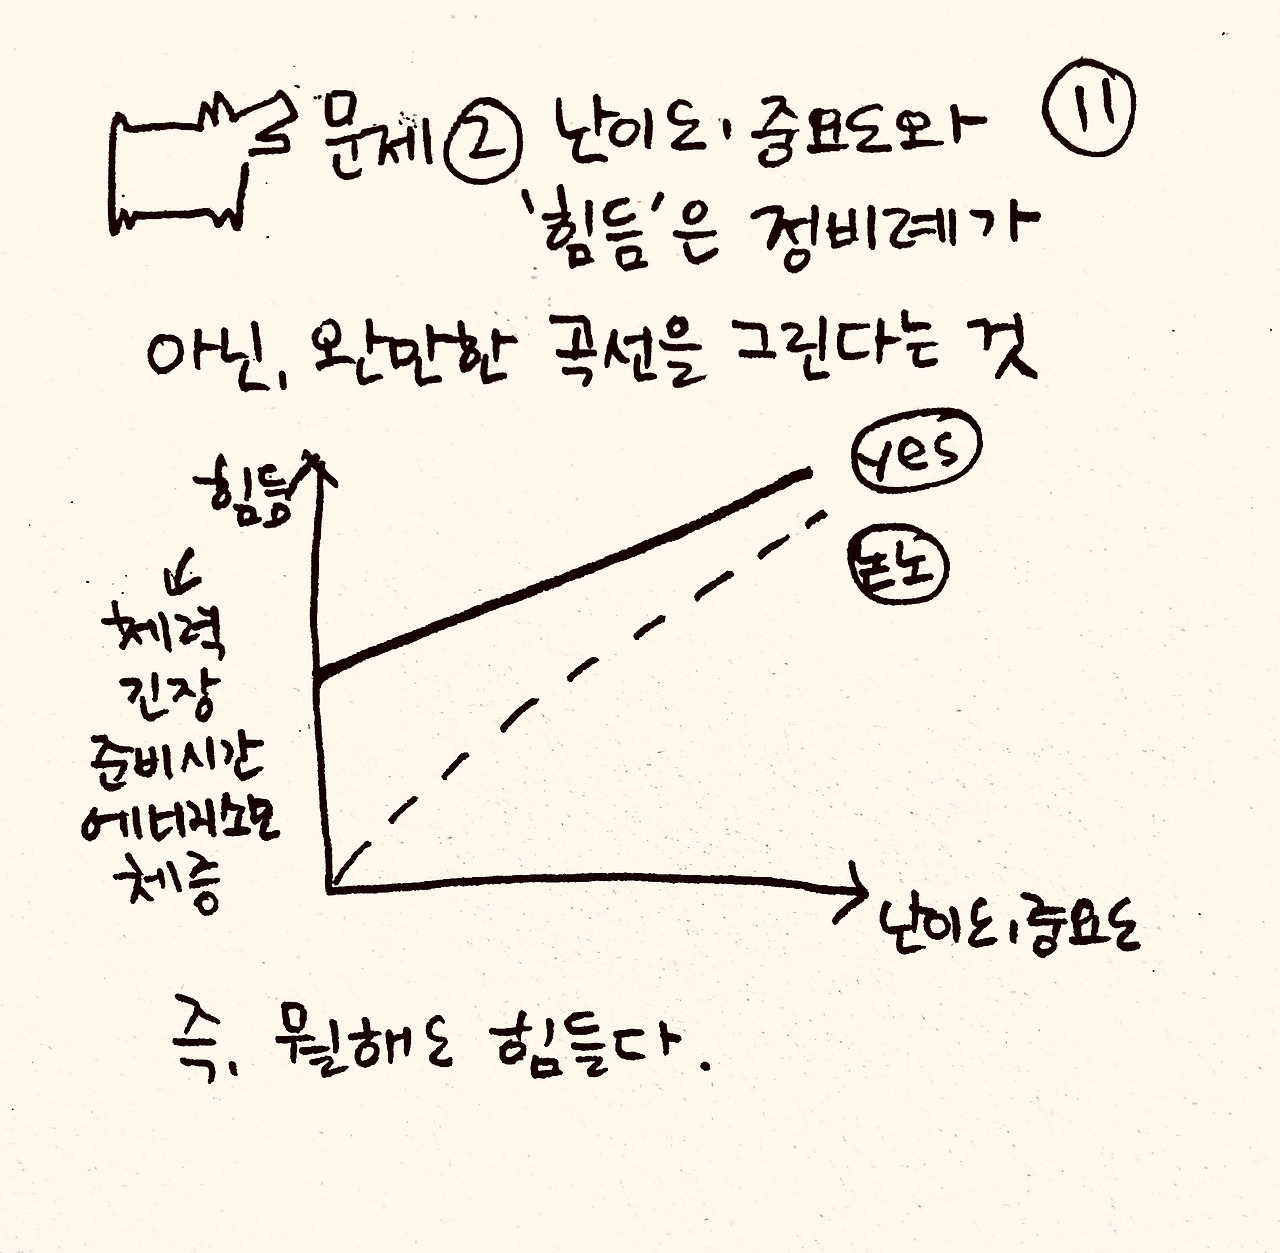 문제② 난이도, 중요도와 ⑪
'힘듦'은 정비례가
아닌, 완만한 곡선을 그린다는 것
힘듦
yes
논노
체력
긴장
준비시간
에너지소모
체증
난이도, 중요도
즉, 뭘해도 힘들다.